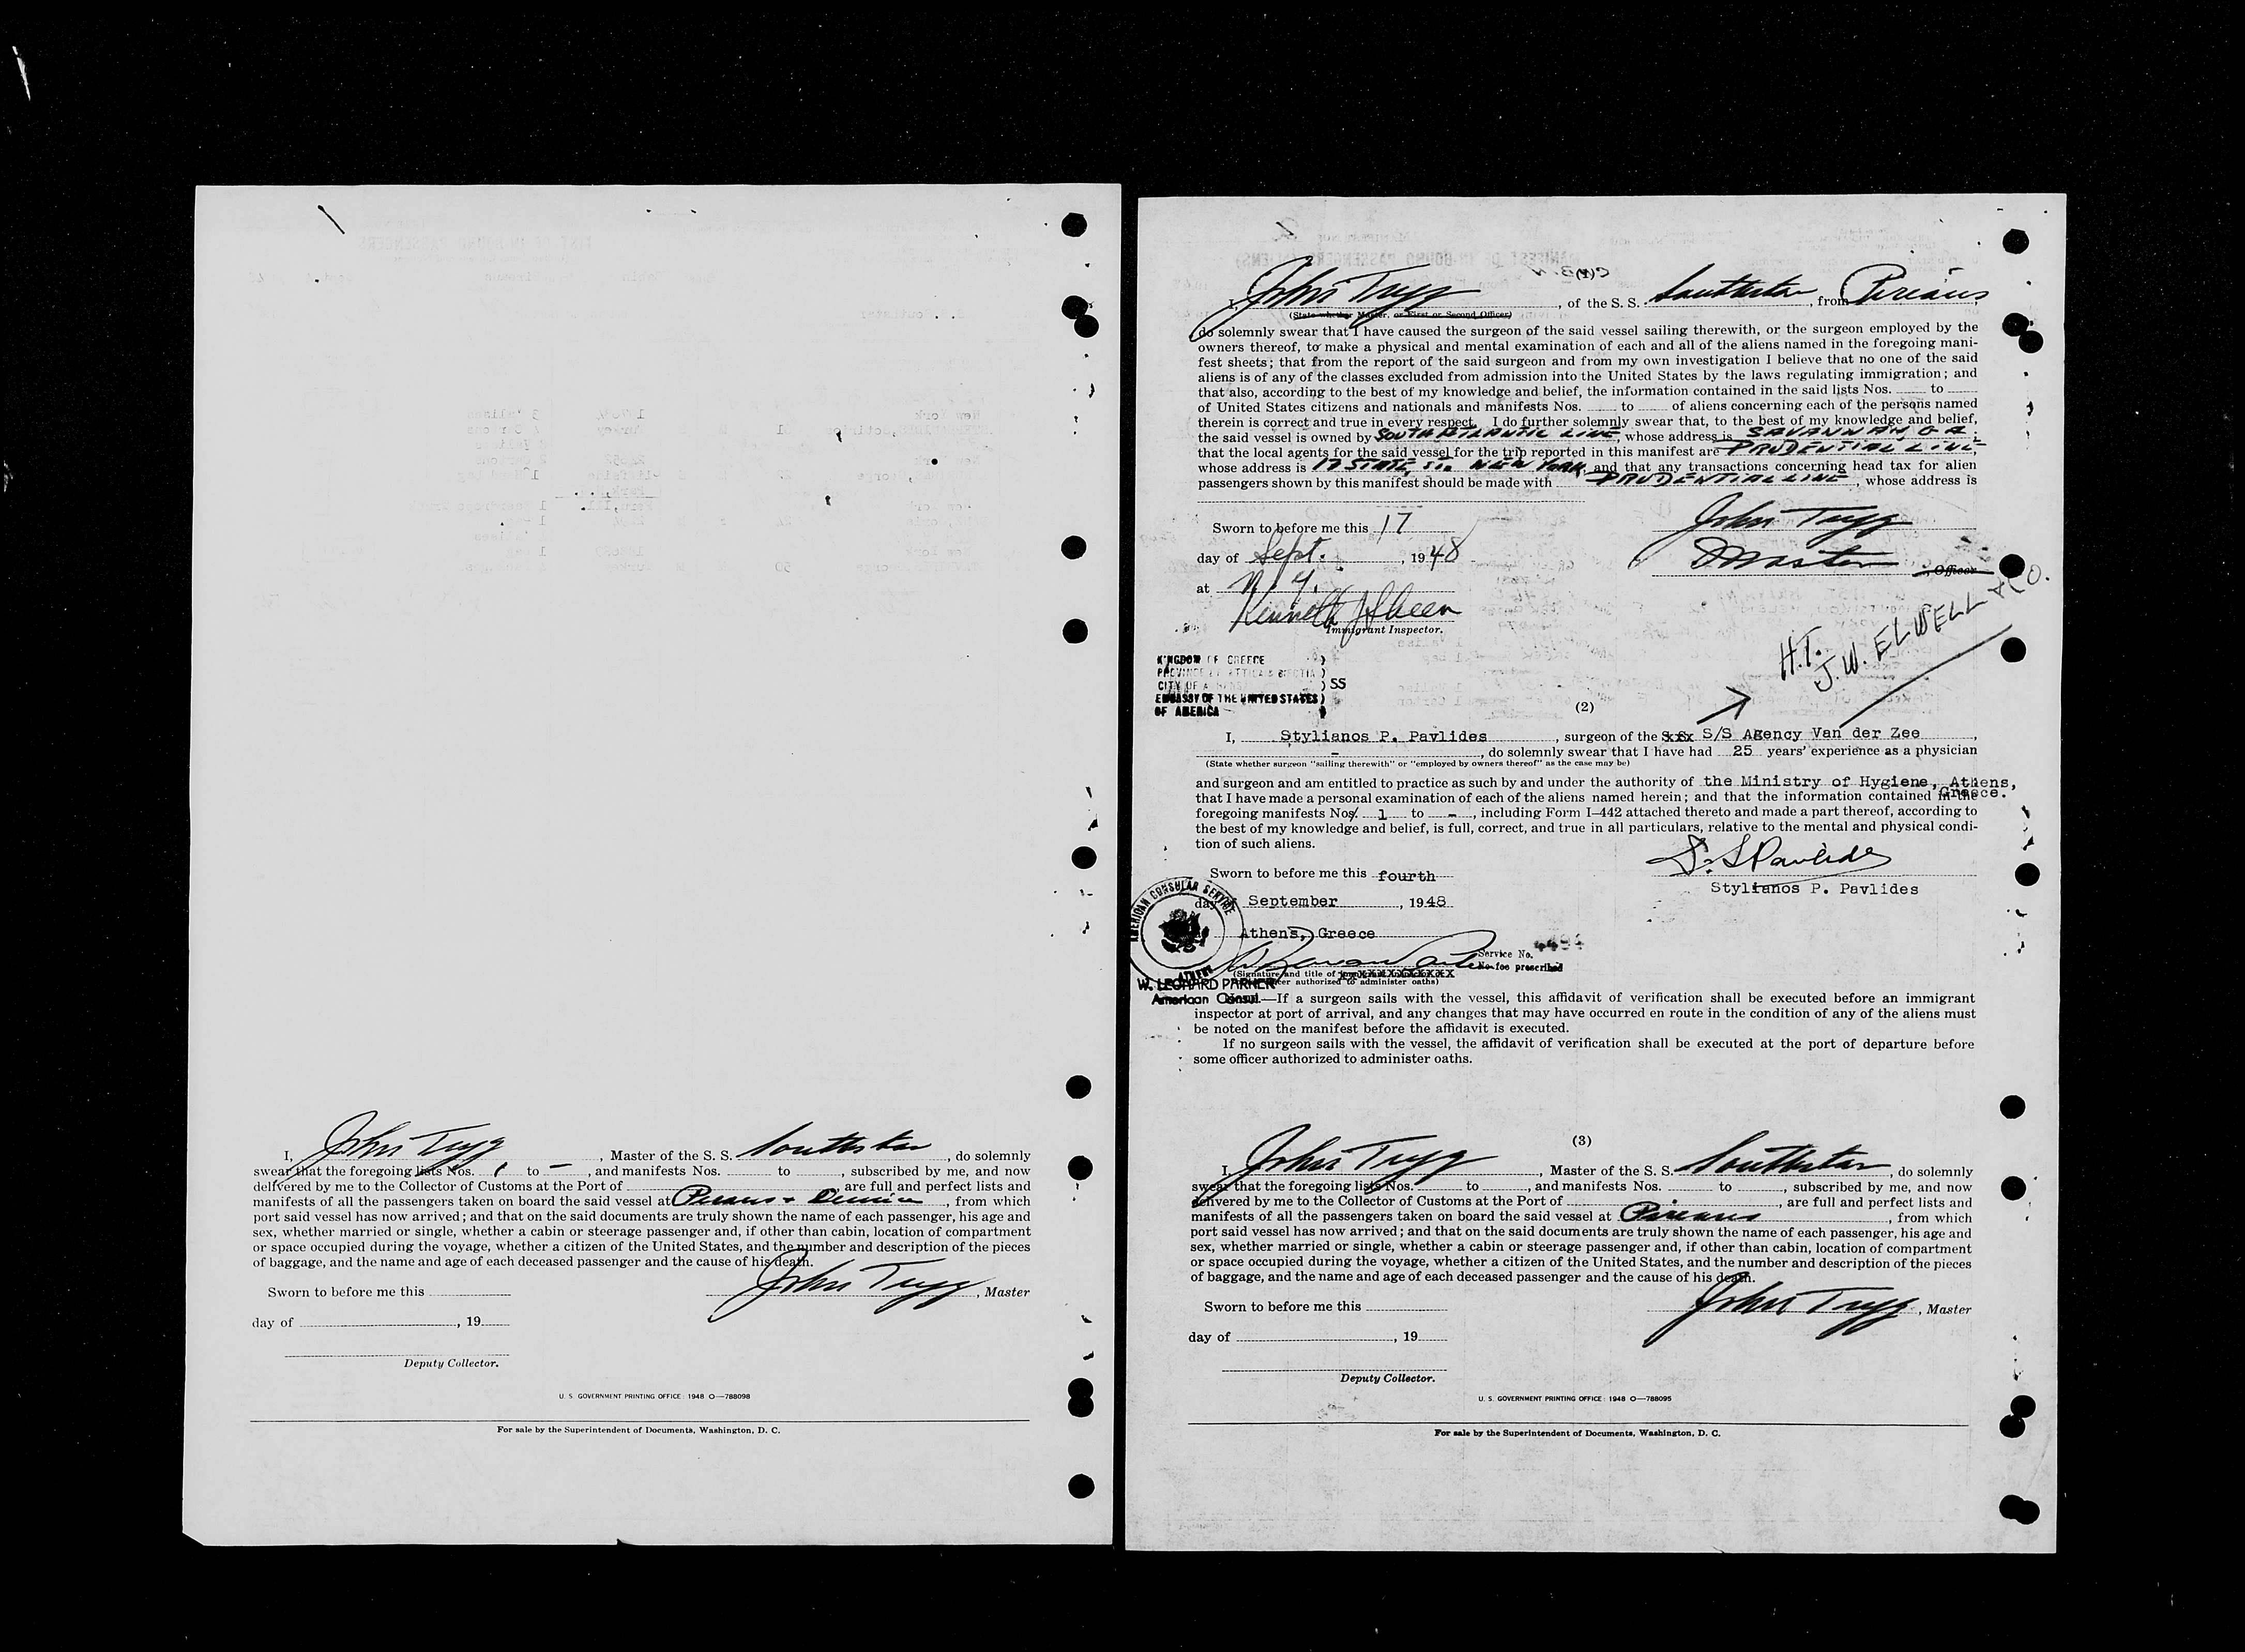 I, John Trygg, Master of the S. S. Southstar, do solemnly
swear that the foregoing lists Nos. 1 to –, and manifests Nos. to , subscribed by me, and now
delivered by me to the Collector of Customs at the Port of , are full and perfect lists and
manifests of all the passengers taken on board the said vessel at Pireaus +, from which
port said vessel has now arrived; and that on the said documents are truly shown the name of each passenger, his age and
sex, whether married or single, whether a cabin or steerage passenger and, if other than cabin, location of compartment
or space occupied during the voyage, whether a citizen of the United States, and the number and description of the pieces
of baggage, and the name and age of each deceased passenger and the cause of his death.
Sworn to before me this
John Trygg, Master
day of , 19
Deputy Collector.
U. S. GOVERNMENT PRINTING OFFICE: 1948 O—788098
For sale by the Superintendent of Documents, Washington, D. C.
(1)
I, John Trygg, of the S. S. Southstar, from Pireaus,
(State whether Master, or First or Second Officer)
do solemnly swear that I have caused the surgeon of the said vessel sailing therewith, or the surgeon employed by the
owners thereof, to make a physical and mental examination of each and all of the aliens named in the foregoing mani-
fest sheets; that from the report of the said surgeon and from my own investigation I believe that no one of the said
aliens is of any of the classes excluded from admission into the United States by the laws regulating immigration; and
that also, according to the best of my knowledge and belief, the information contained in the said lists Nos. to
of United States citizens and nationals and manifests Nos. to of aliens concerning each of the persons named
therein is correct and true in every respect. I do further solemnly swear that, to the best of my knowledge and belief,
the said vessel is owned by SOUTH ATLANTIC LINE, whose address is SAVANNAH GA.,
that the local agents for the said vessel for the trip reported in this manifest are PRUDENTIAL LINE,
whose address is 17 STATE ST. NEW YORK, and that any transactions concerning head tax for alien
passengers shown by this manifest should be made with PRUDENTIAL LINE, whose address is
Sworn to before me this 17
John Trygg
day of Sept., 1948
Master, Officer
at N.Y.
Kenneth J Sheen
Immigrant Inspector.
H.T. J.W. ELWELL & CO.
KINGDOM OF GREECE )
PROVINCE OF ATTICA & BEOTIA )
CITY OF ATHENS ) SS
EMBASSY OF THE UNITED STATES )
OF AMERICA )
(2)
I, Stylianos P. Pavlides, surgeon of the S.S. S/S Agency Van der Zee,
-, do solemnly swear that I have had 25 years' experience as a physician
(State whether surgeon "sailing therewith" or "employed by owners thereof" as the case may be)
and surgeon and am entitled to practice as such by and under the authority of the Ministry of Hygiene, Athens, Greece.
that I have made a personal examination of each of the aliens named herein; and that the information contained in the
foregoing manifests Nos. 1 to -, including Form I-442 attached thereto and made a part thereof, according to
the best of my knowledge and belief, is full, correct, and true in all particulars, relative to the mental and physical condi-
tion of such aliens.
S. P. Pavlides
Sworn to before me this fourth
Stylianos P. Pavlides
day of September, 1948
AMERICAN CONSULAR SERVICE
ATHENS
Athens, Greece
Service No.
No fee prescribed
(Signature and title of
officer authorized to administer oaths)
W. LEONARD PARKER
American Consul
—If a surgeon sails with the vessel, this affidavit of verification shall be executed before an immigrant
inspector at port of arrival, and any changes that may have occurred en route in the condition of any of the aliens must
be noted on the manifest before the affidavit is executed.
If no surgeon sails with the vessel, the affidavit of verification shall be executed at the port of departure before
some officer authorized to administer oaths.
(3)
I, John Trygg, Master of the S. S. Southstar, do solemnly
swear that the foregoing lists Nos. to , and manifests Nos. to , subscribed by me, and now
delivered by me to the Collector of Customs at the Port of , are full and perfect lists and
manifests of all the passengers taken on board the said vessel at Pireaus, from which
port said vessel has now arrived; and that on the said documents are truly shown the name of each passenger, his age and
sex, whether married or single, whether a cabin or steerage passenger and, if other than cabin, location of compartment
or space occupied during the voyage, whether a citizen of the United States, and the number and description of the pieces
of baggage, and the name and age of each deceased passenger and the cause of his death.
Sworn to before me this
John Trygg, Master
day of , 19
Deputy Collector.
U. S. GOVERNMENT PRINTING OFFICE: 1948 O—788095
For sale by the Superintendent of Documents, Washington, D. C.